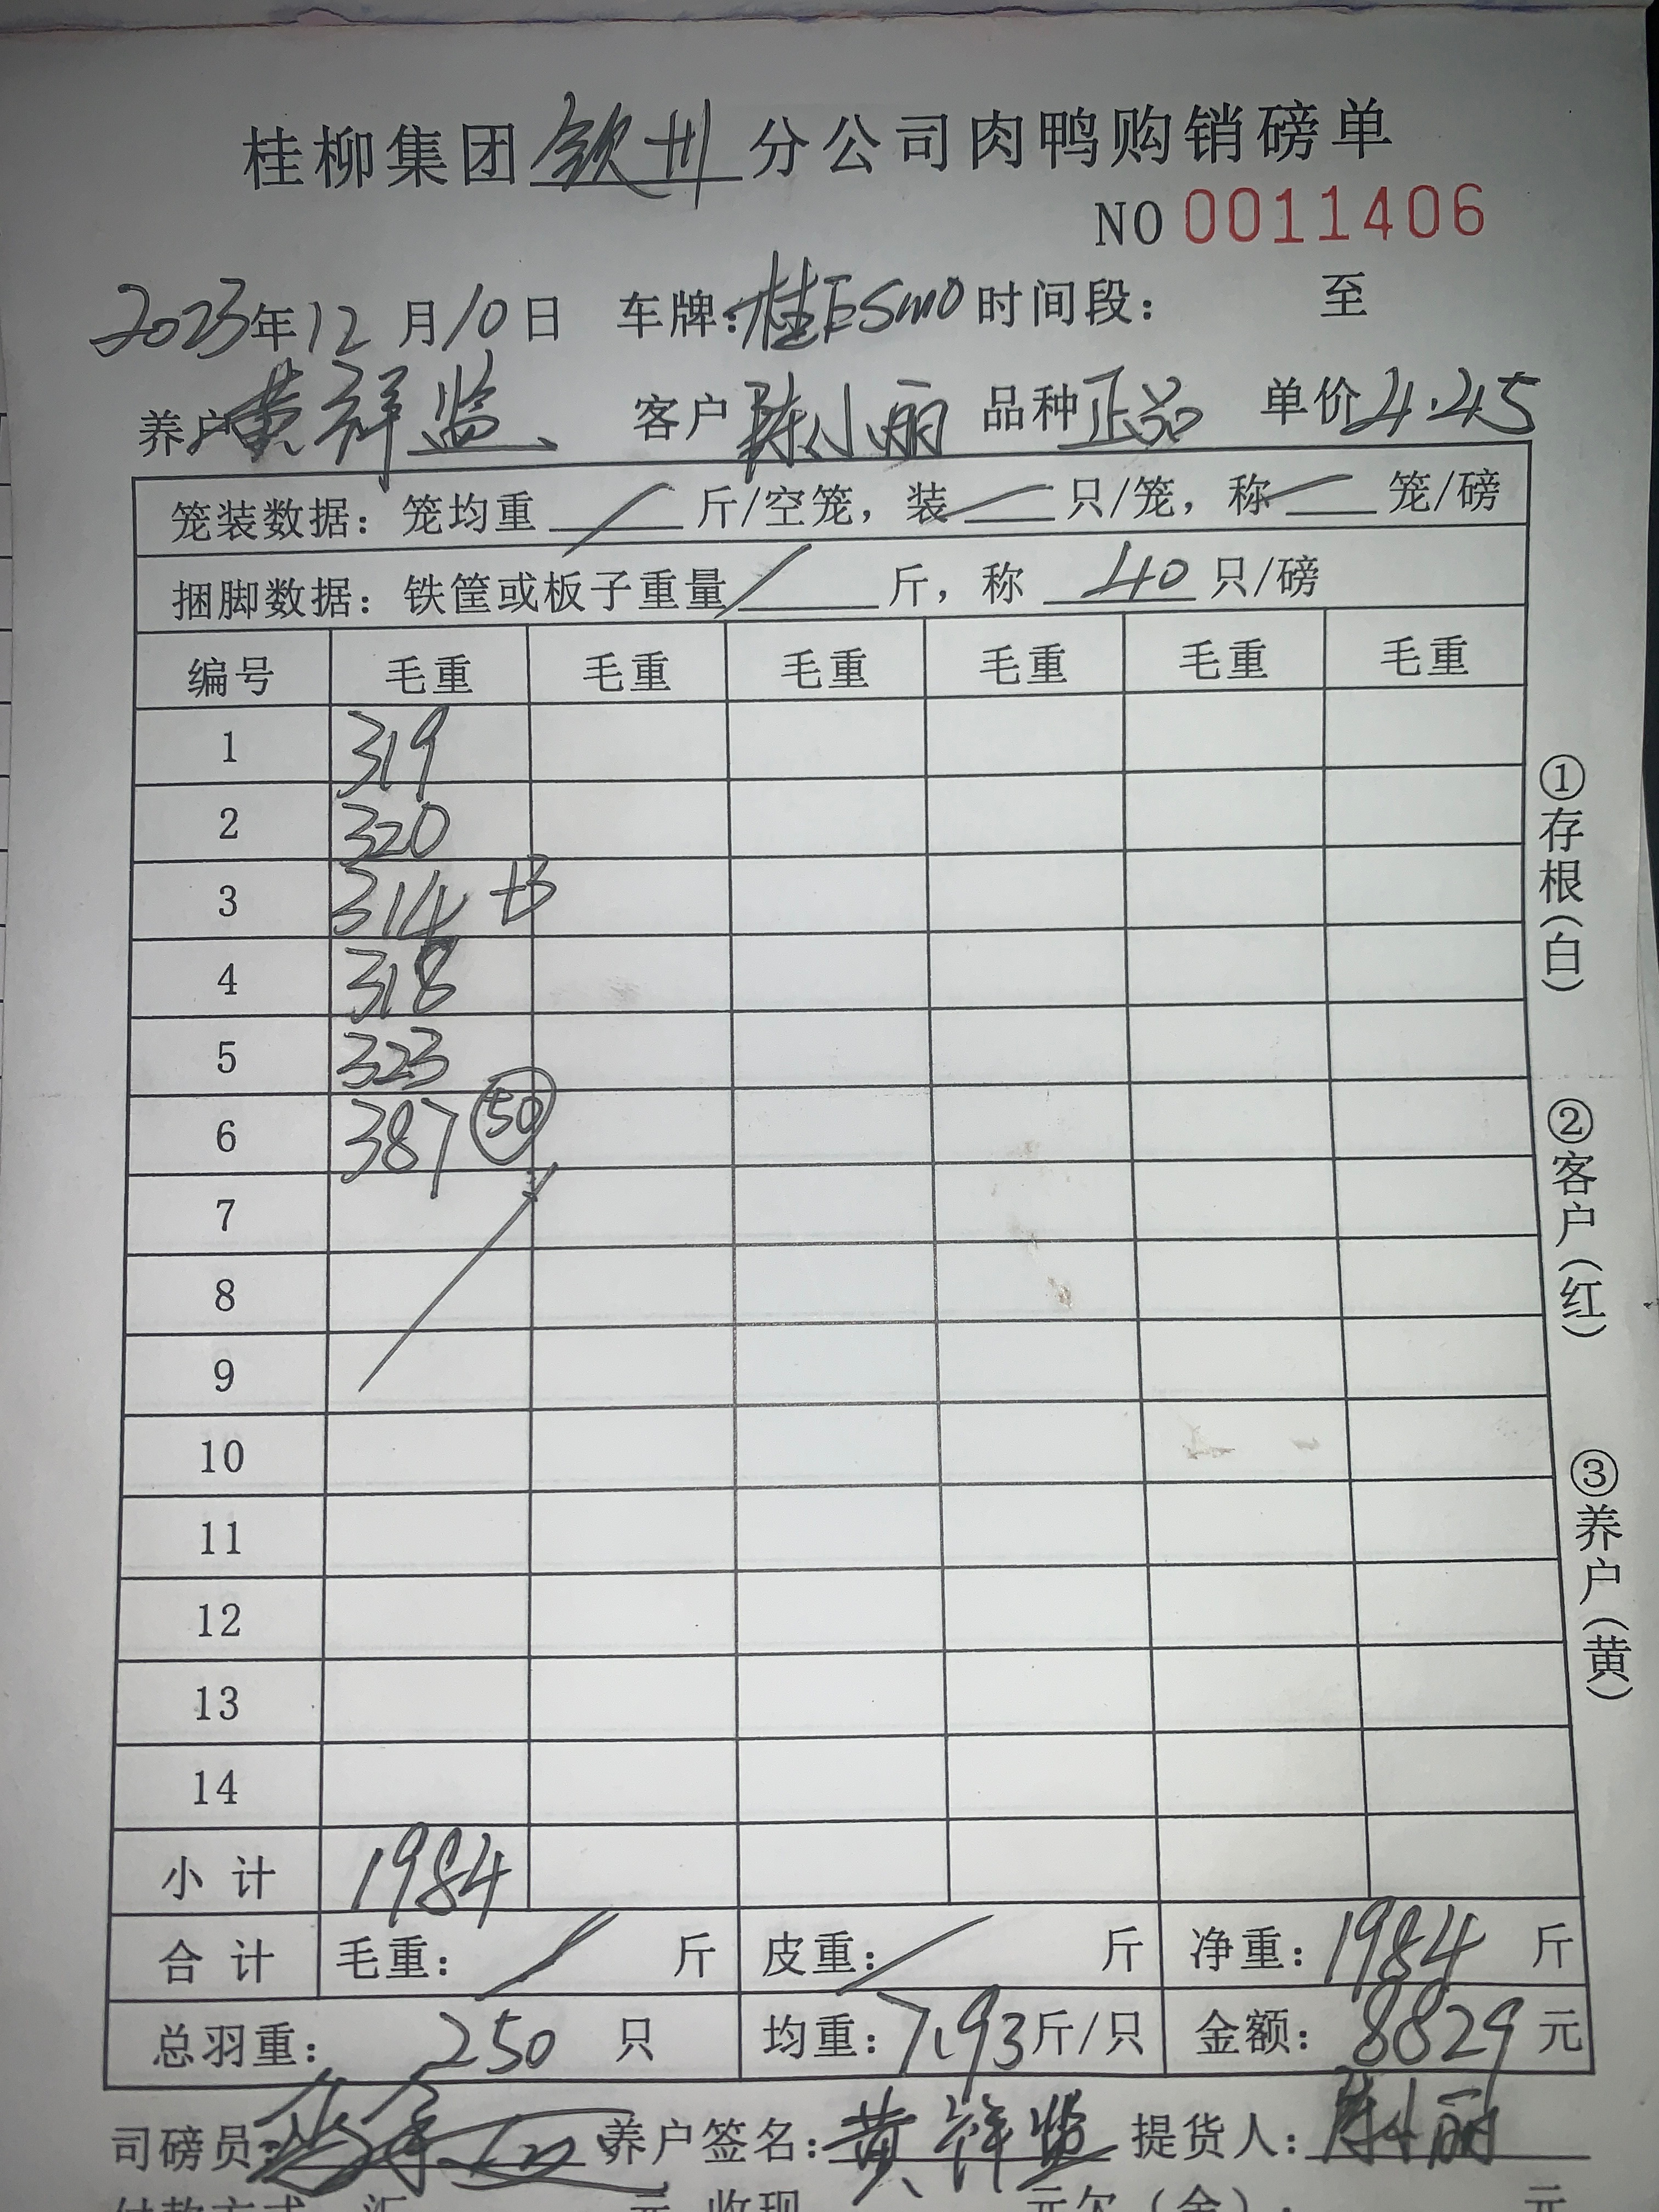 桂柳集团钦州分公司肉鸭购销磅单
NO 0011406
2023年12月10日 车牌: 时间段: 至
养户黄祥监 客户陈小丽 品种正品 单价4.45
笼装数据: 笼均重 / 斤/空笼, 装 / 只/笼, 称 / 笼/磅
捆脚数据: 铁筐或板子重量 / 斤, 称 40 只/磅
编号 毛重 毛重 毛重 毛重 毛重 毛重
1 319
2 320
3 314 +3
4 318
5 323
6 387 50
7
8
9
10
11
12
13
14
小计 1984
合计 毛重: / 斤 皮重: / 斤 净重: 1984 斤
总羽重: 250 只 均重: 7.93斤/只 金额: 8829元
司磅员: 养户签名: 黄祥监 提货人: 陈小丽
付款方式 汇 元 收现 元欠(余): 元
①存根(白)
②客户(红)
③养户(黄)